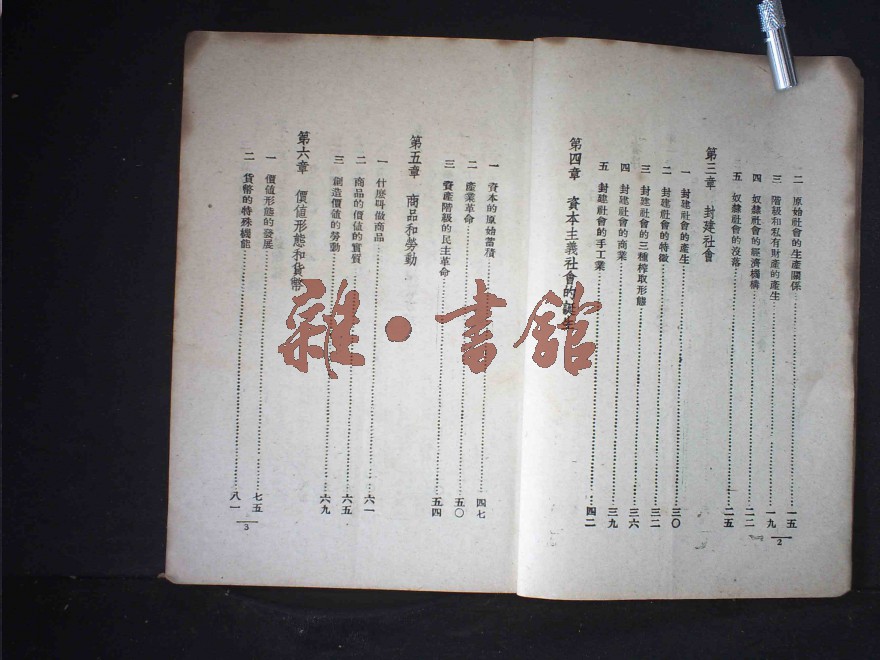 二　原始社會的生產關係……一五
三　階級和私有財產的產生……一九
四　奴隸社會的經濟機構……二二
五　奴隸社會的沒落……二五
第三章　封建社會
一　封建社會的產生……三〇
二　封建社會的特徵……三二
三　封建社會的三種榨取形態……三六
四　封建社會的商業……三九
五　封建社會的手工業……四二
第四章　資本主義社會的誕生
2
一　資本的原始蓄積……四七
二　產業革命……五〇
三　資產階級的民主革命……五四
第五章　商品和勞動
一　什麼叫做商品……六一
二　商品的價值的實質……六五
三　創造價值的勞動……六九
第六章　價值形態和貨幣
一　價值形態的發展……七五
二　貨幣的特殊機能……八一
3
雜·書館